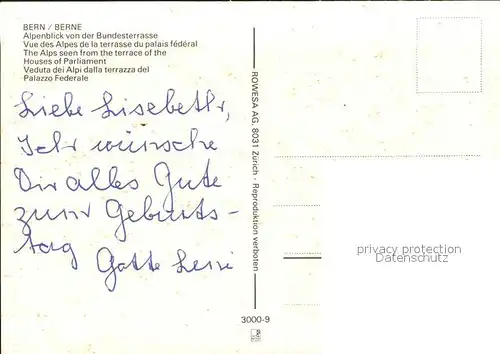 BERN / BERNE
Alpenblick von der Bundesterrasse
Vue des Alpes de la terrasse du palais fédéral
The Alps seen from the terrace of the
Houses of Parliament
Veduta dei Alpi dalla terrazza del
Palazzo Federale
Liebe Lisebeth,
Ich wünsche
Dir alles Gute
zum Geburts-
tag
ROWESA AG, 8031 Zürich - Reproduktion verboten
3000-9
privacy protection
Datenschutz